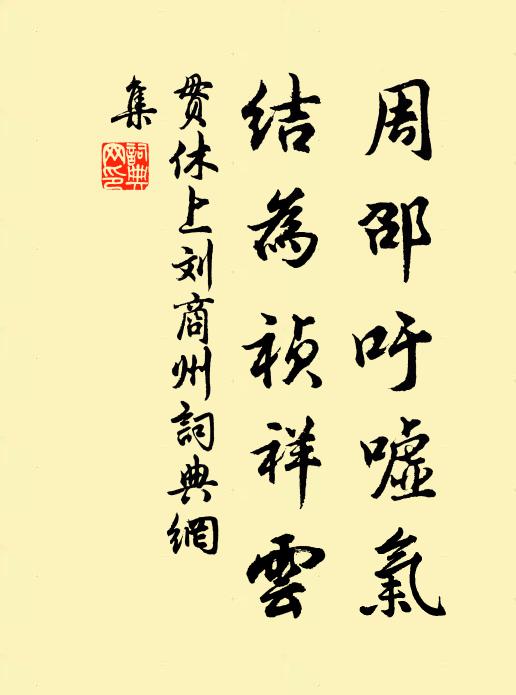 周邵吁嘘氣
結為禎祥雲
贯休上刘商州詞典網
集
詞典
网印